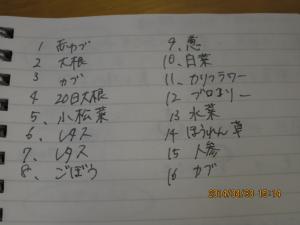 1 赤カブ
2 大根
3 カブ
4 20日大根
5、小松菜
6、レタス
7、レタス
8、ごぼう
9、葱
10、白菜
11、カリフラワー
12 ブロッコリー
13 水菜
14 ほうれん草
15 人参
16 カブ